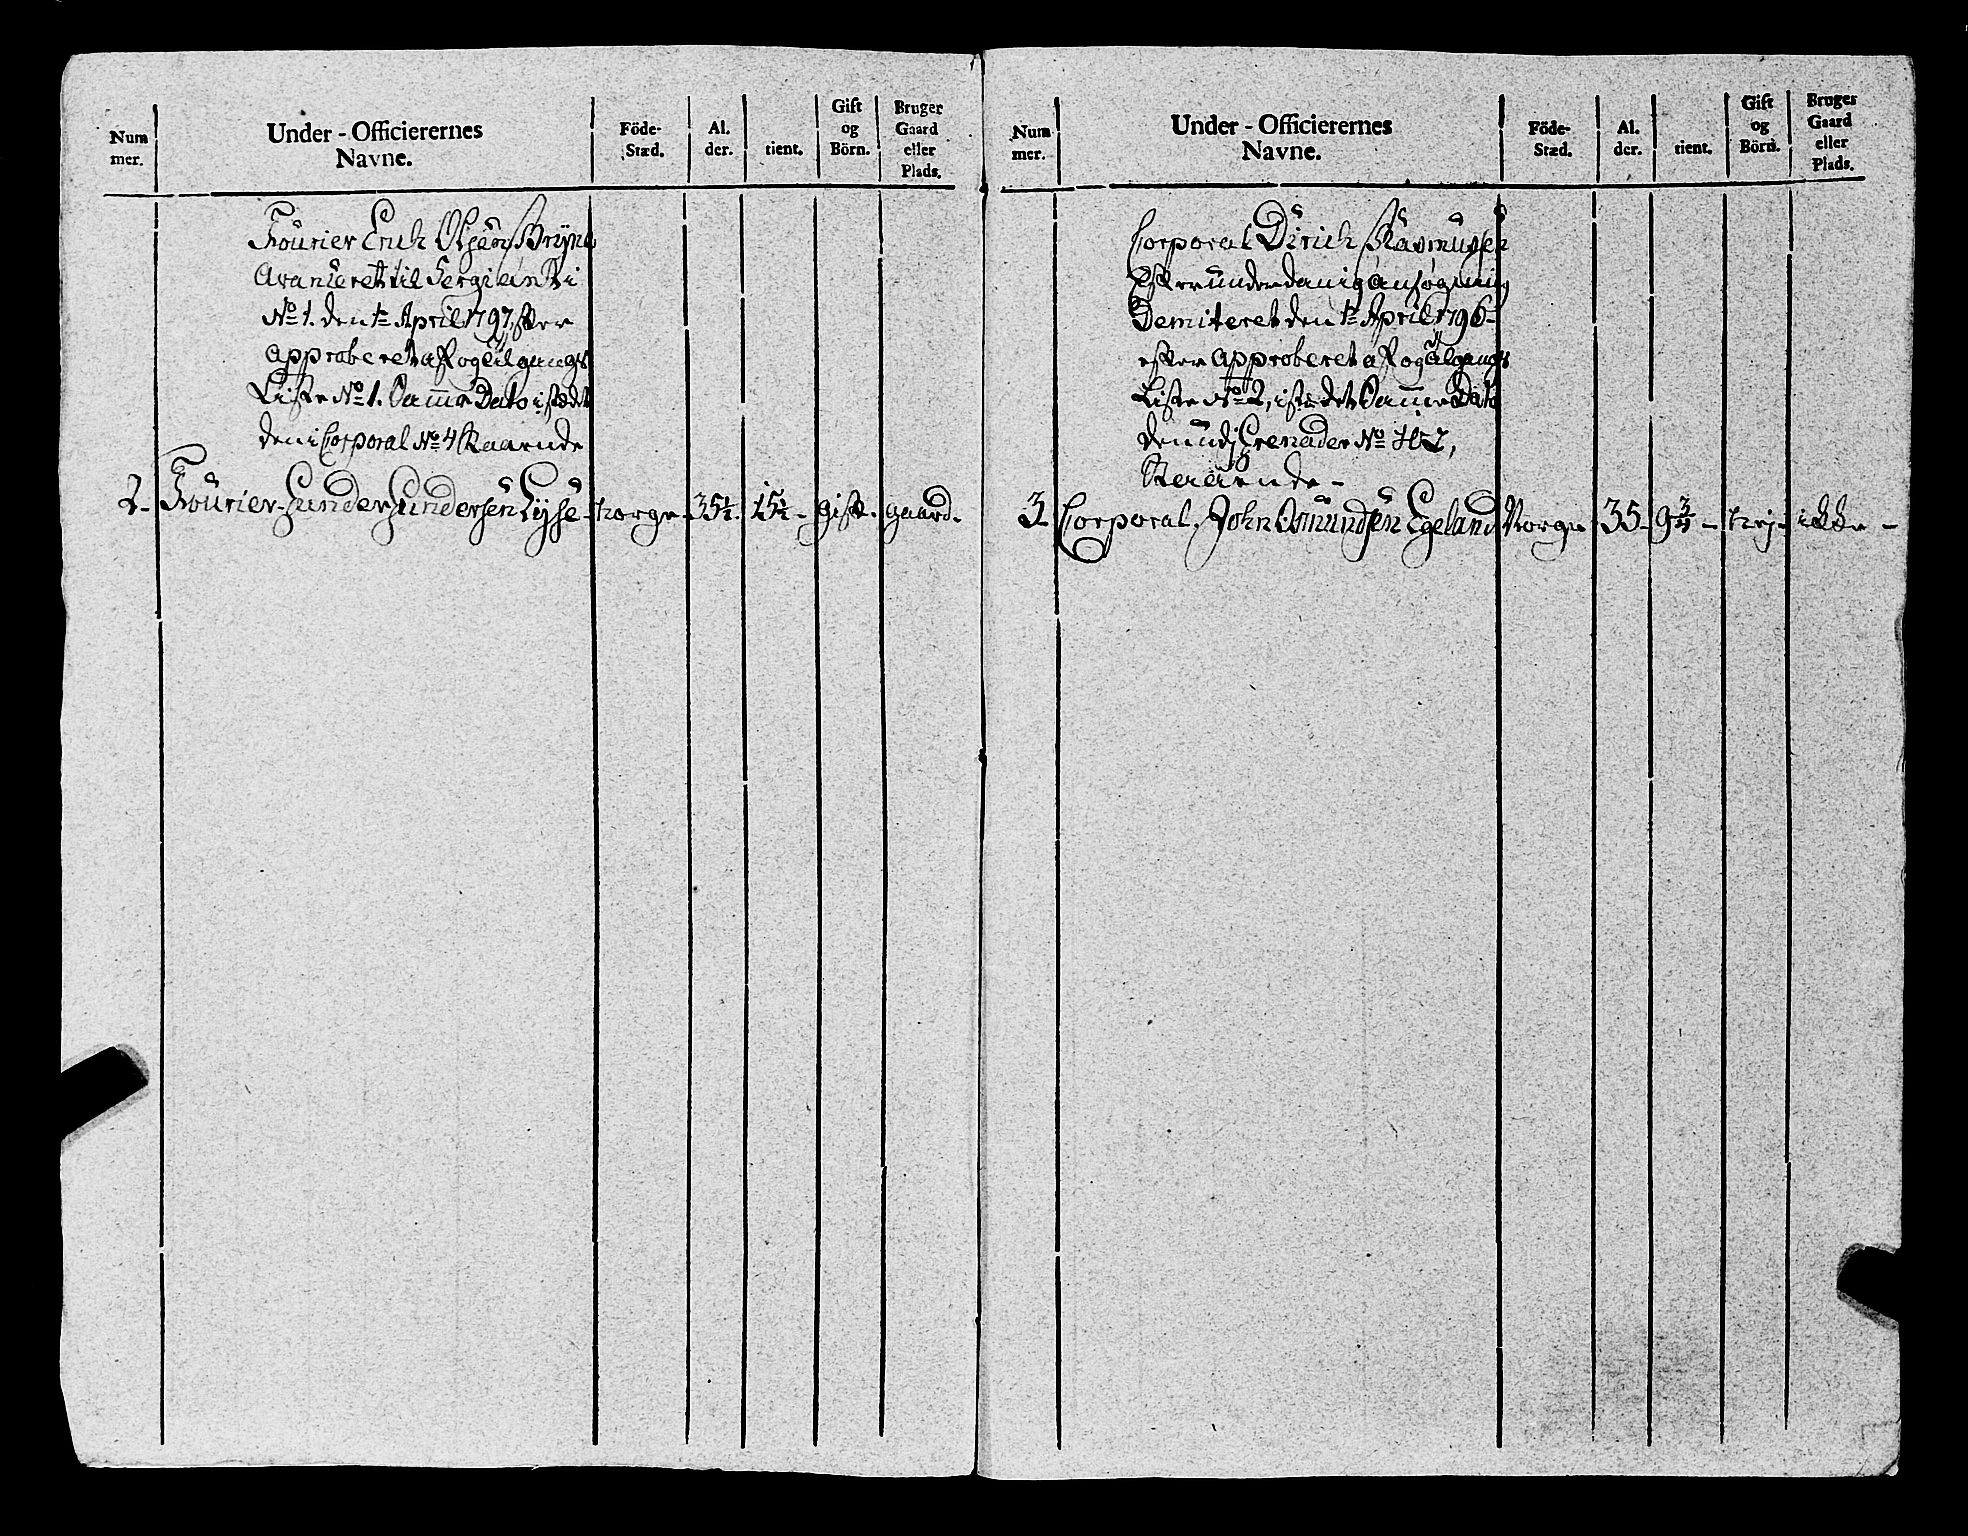 Num
mer.
Under-Officierernes
Navne.
Föde-
Stæd.
Al.
der.
tient.
Gift
og
Börn.
Bruger
Gaard
eller
Plads.
Fourier Erich Olsen Bryne
Avanceret til Sergiant i
No 1. den 1te April 1797. efter
approberet af og tilgangs
Liste No 1. Samme Dato istædt
den i Corporal No 4 staaende
2- Fourier Gunder Gundersen Lyse - Norge - 35½. 15½ - gift. gaard.
Num
mer.
Under-Officierernes
Navne.
Föde-
Stæd.
Al.
der.
tient.
Gift
og
Börn.
Bruger
Gaard
eller
Plads.
Corporal Dirich Rasmussen
Efter underdanig ansøgning
Demiteret den 1te April 1796
efter approberet af og tilgangs
Liste No 2, istædet Samme Dato
den udj Grenader No
Staaende -
3 Corporal. John Osmundsen Egeland Norge 35- 9¾ - nej- ikke -